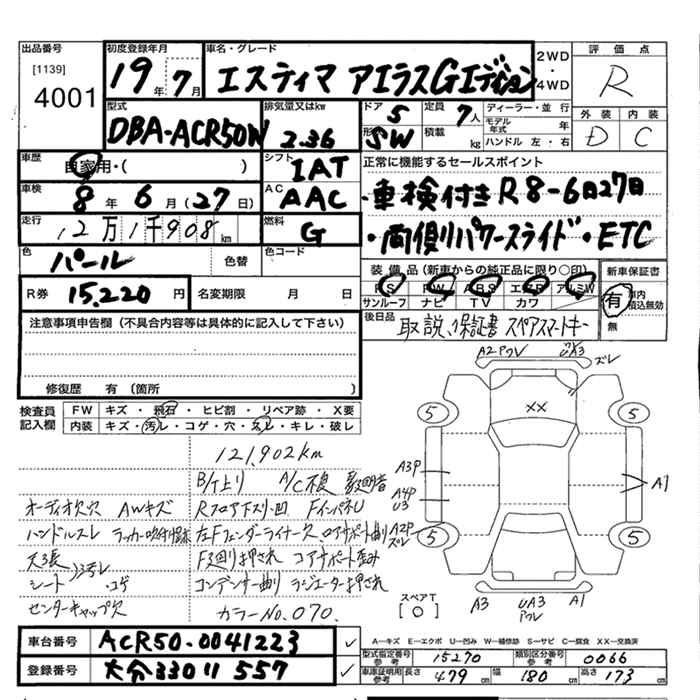 出品番号 初度登録年月 車名・グレード 2WD 評価点
[1139] 19年 7月 エスティマ アエラスGエディション ・ R
4001 4WD
型式 排気量又はkw ドア 5 定員 7人 ディーラー・並行 外装 内装
DBA-ACR50W 2.36 形 SW 積載 kg モデル年式 年 D C
ハンドル 左・右
車歴 自家用・( ) シフト IAT 正常に機能するセールスポイント
車検 8年 6月 (27日) AC AAC ・車検付き R8-6日27日
走行 12万1千908km 燃料 G ・両側リパワースライド・ETC
色 パール 色替 色コード
装備品(新車からの純正品に限り〇印) 新車保証書
R券 15,220円 名変期限 月 日 PS PW ABS エアB アルミW 有 車内積込無効
サンルーフ ナビ TV カワ
後日品 取説、保証書 スペアスマートキー 無
注意事項申告欄(不具合内容等は具体的に記入して下さい)
修復歴 有(箇所
A2 Pクレ U3A ズレ
検査員記入欄 FW キズ・飛石・ヒビ割・リペア跡・X要
内装 キズ・汚レ・コゲ・穴・スレ・キレ・破レ
XX
5 5
121,902km
B/T上り A/C不良
オーディオ欠穴 AWキズ Rフロア下スリ・凹 FインパネU
A3P A4P U3 A1
ハンドルスレ 左Fフェンダーライナー欠 コアサポート曲り A2P ズレ
天張 F廻り押され コアサポート歪み 5 5
シート ・コゲ コンデンサー曲り ラジエーター押され
センターキャップ欠 カラーNo.070.
スペアT [○] A3 UA3 Pクレ A1
車台番号 ACR50-0041223 ✓ A―キズ E―エクボ U―凹み W―補修跡 S―サビ C―腐食 XX―交換済
登録番号 大分330 11 557 ✓ 型式指定番号参考 15270 類別区分番号参考 0066
車庫証明用参考 長さ 479cm 幅 180cm 高さ 173cm